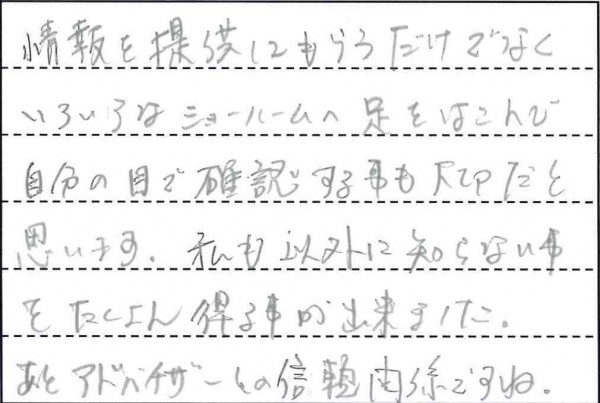 情報を提供してもらうだけでなく
いろいろなショールームへ足をはこんで
自分の目で確認する事も大切だと
思います。私も以外に知らない事
をたくさん得る事が出来ました。
あとアドバイザーとの信頼関係ですね。